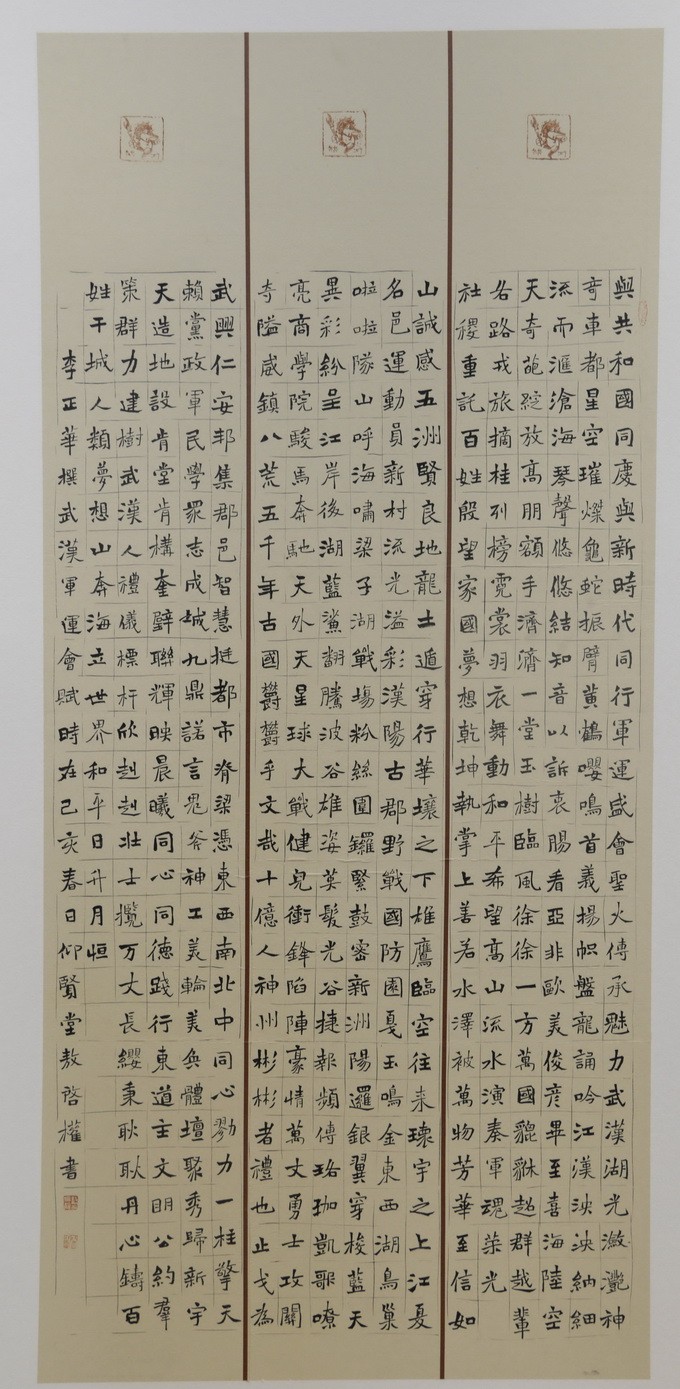 與共和國同慶與新時代同行軍運盛會聖火傳承魅力武漢湖光瀲灩神
奇車都星空璀燦龜蛇振臂黄鶴嚶鳴首義揚幟盤龍誦吟江漢泱泱納細
流而滙滄海琴聲悠悠結知音以訴衷賜看亞非歐美俊彦畢至喜海陸空
天奇葩綻放高朋額手濟濟一堂玉樹臨風徐徐一方萬國貔貅超群越輩
各路戎旅摘桂列榜霓裳羽衣舞動和平希望高山流水演奏軍魂荣光
社稷重託百姓殷望家國夢想乾坤執掌上善若水澤被萬物芳華至信如
山誠感五洲賢良地龍土遁穿行華壤之下雄鷹臨空往来瓌宇之上江夏
名邑運動員新村流光溢彩漢陽古郡野戰國防園戛玉鳴金東西湖鳥巢
啦啦隊山呼海嘯梁子湖戰場粉絲團鑼緊鼓密新洲陽邏銀翼穿梭藍天
異彩紛呈江岸後湖藍鯊翻騰波谷雄姿英髮光谷捷報頻傳珞珈凱歌嘹
亮商學院駿馬奔馳天外天星球大戰健兒衝鋒陷陣豪情萬丈勇士攻關
奇隘威鎮八荒五千年古國欝欝乎文哉十億人神州彬彬者禮也止戈為
武興仁安邦集郡邑智慧挺都市脊梁憑東西南北中同心勠力一柱擎天
賴黨政軍民學眾志成城九鼎諾言鬼斧神工美輪美奐體壇聚秀歸新宇
天造地設肯堂肯構奎壁聯輝映晨曦同心同德踐行東道主文明公約羣
策群力建樹武漢人禮儀標杆欣赳赳壯士攬万丈長纓秉耿耿丹心鑄百
姓干城人類夢想山奔海立世界和平日升月恒
李正華撰武漢軍運會賦時在己亥春日仰賢堂敖啓權書